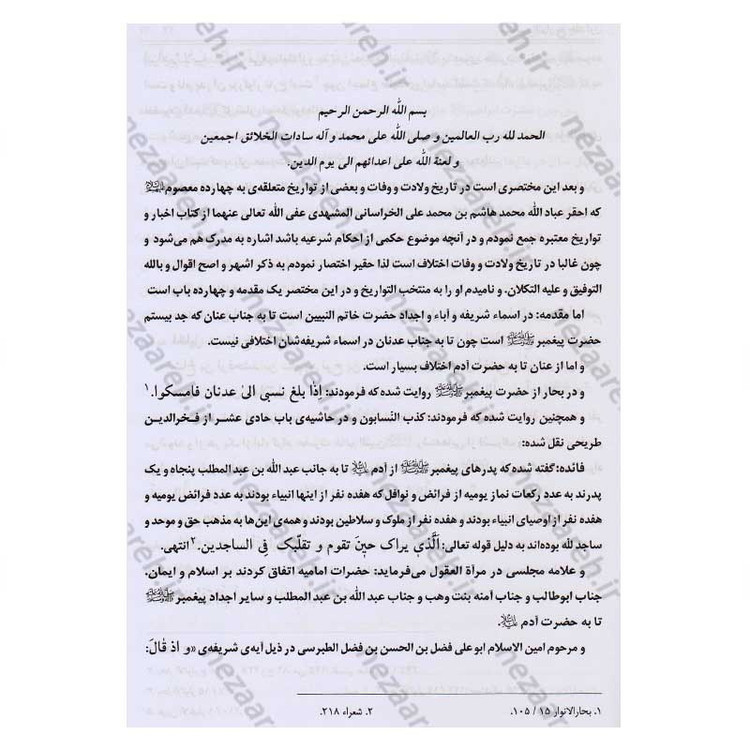 بسم الله الرحمن الرحیم
الحمد لله رب العالمین و صلی الله علی محمد و آله سادات الخلائق اجمعین
و لعنة الله علی اعدائهم الی یوم الدین.
و بعد این مختصری است در تاریخ ولادت و وفات و بعضی از تواریخ متعلقه‌ی به چهارده معصوم علیهم السلام
که احقر عباد الله محمد هاشم بن محمد علی الخراسانی المشهدی عفی الله تعالی عنهما از کتاب اخبار و
تواریخ معتبره جمع نمودم و در آنچه موضوع حکمی از احکام شرعیه باشد اشاره به مدرک هم می‌شود و
چون غالبا در تاریخ ولادت و وفات اختلاف است لذا حقیر اختصار نمودم به ذکر اشهر و اصح اقوال و بالله
التوفیق و علیه التکلان. و نامیدم او را به منتخب التواریخ و در این مختصر یک مقدمه و چهارده باب است
اما مقدمه: در اسماء شریفه و آباء و اجداد حضرت خاتم النبیین است تا به جناب عنان که جد بیستم
حضرت پیغمبر ﷺ است چون تا به جناب عدنان در اسماء شریفه‌شان اختلافی نیست.
و اما از عنان تا به حضرت آدم اختلاف بسیار است.
و در بحار از حضرت پیغمبر ﷺ روایت شده که فرمودند: إذا بلغ نسبی الیٰ عدنان فامسکوا.۱
و همچنین روایت شده که فرمودند: کذب النسابون و در حاشیه‌ی باب حادی عشر از فخرالدین
طریحی نقل شده:
فائده: گفته شده که پدرهای پیغمبر ﷺ از آدم علیه السلام تا به جانب عبد الله بن عبد المطلب پنجاه و یک
پدرند به عدد رکعات نماز یومیه از فرائض و نوافل که هفده نفر از اینها انبیاء بودند به عدد فرائض یومیه و
هفده نفر از اوصیای انبیاء بودند و هفده نفر از ملوک و سلاطین بودند و همه‌ی این‌ها به مذهب حق و موحد و
ساجد لله بوده‌اند به دلیل قوله تعالی: اَلَّذی یراک حین تقوم و تقلّبک فی الساجدین.۲ انتهی.
و علامه مجلسی در مرآة العقول می‌فرماید: حضرات امامیه اتفاق کردند بر اسلام و ایمان.
جناب ابوطالب و جناب آمنه بنت وهب و جناب عبد الله بن عبد المطلب و سایر اجداد پیغمبر ﷺ
تا به حضرت آدم علیه السلام.
و مرحوم امین الاسلام ابوعلی فضل بن الحسن بن فضل الطبرسی در ذیل آیه‌ی شریفه‌ی «و اذ قال:
۱. بحارالانوار ۱۵ / ۱۰۵. ۲. شعراء ۲۱۸.
nezaareh.ir